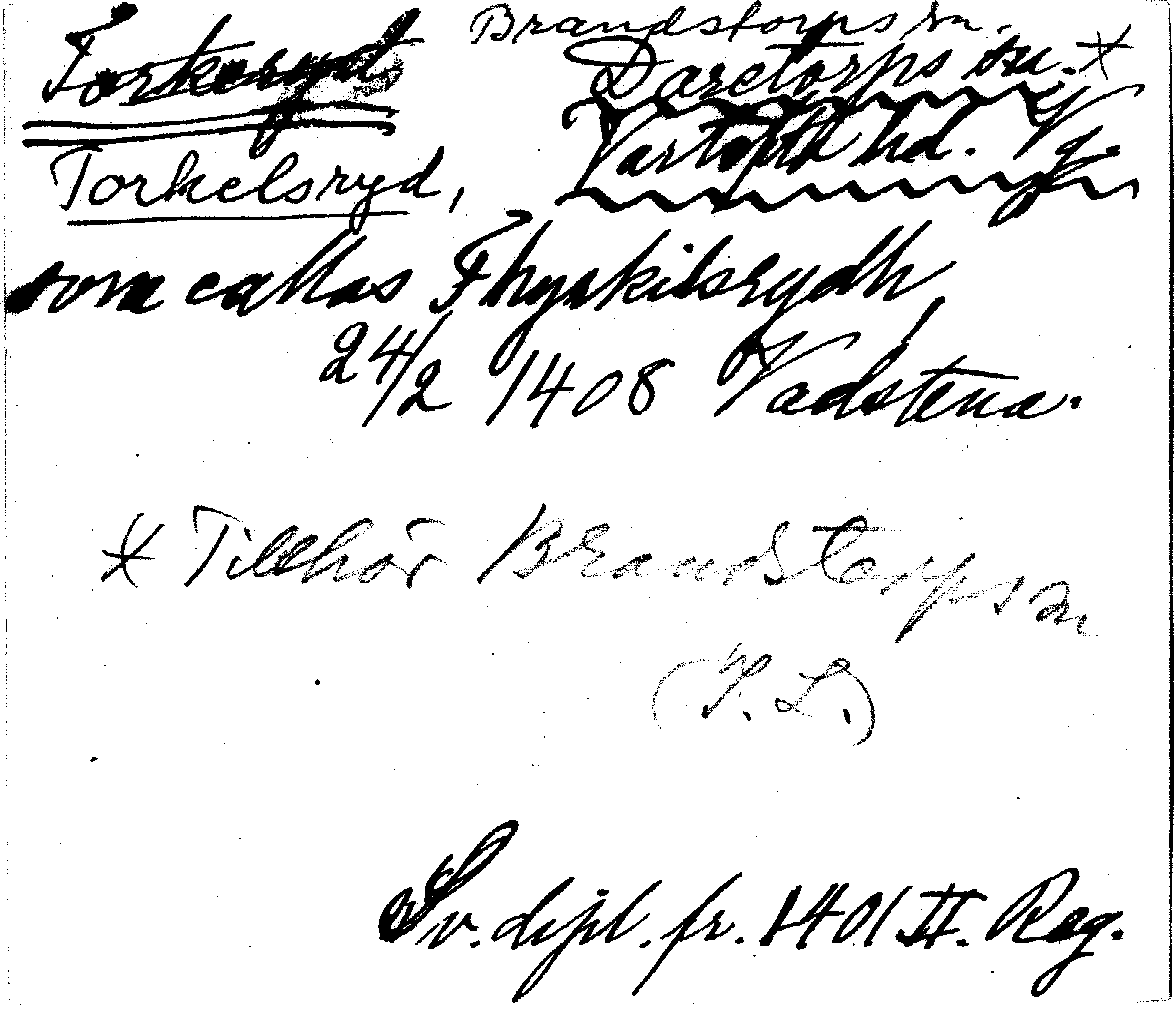 Brandstorps sn.
Torskeryd Daretorps sn. X
Torkelsryd, Vartofta hd. Vg.
som callas Thyrkilsrydh,
24/2 1408 Vadstena.
X Tillhör Brandstorps sn
(I. L.)
Sv. dipl. fr. 1401 II. Reg.